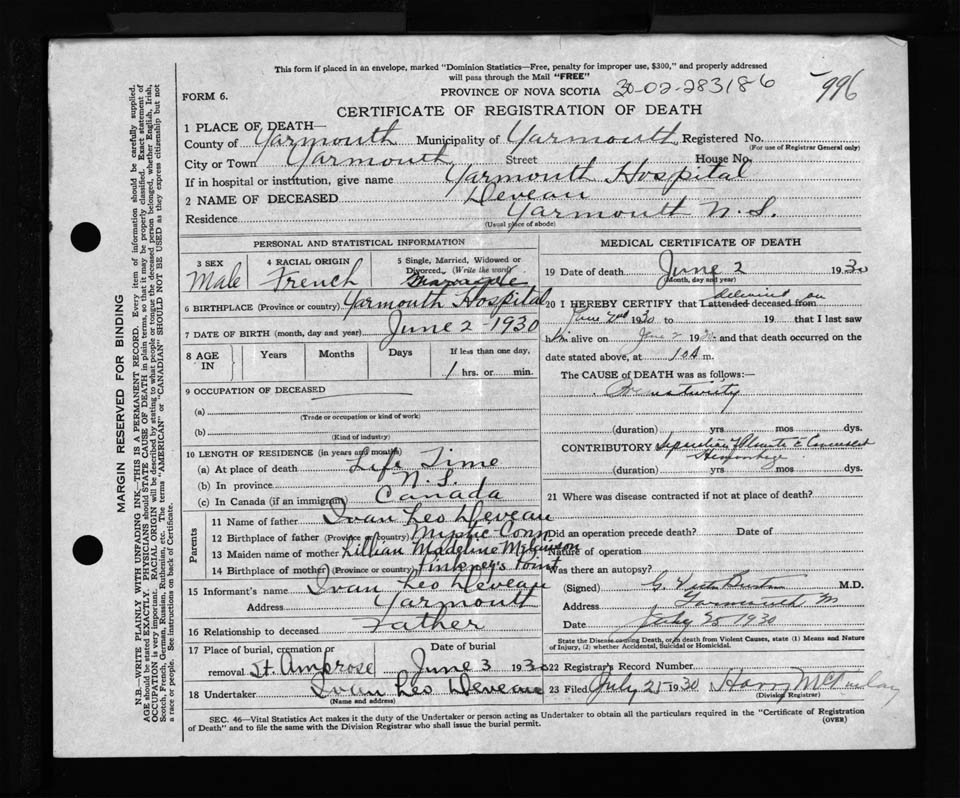 This form if placed in an envelope, marked "Dominion Statistics—Free, penalty for improper use, $300," and properly addressed
will pass through the Mail "FREE"
PROVINCE OF NOVA SCOTIA 30-02-283186 996
FORM 6.
CERTIFICATE OF REGISTRATION OF DEATH
1 PLACE OF DEATH—
County of Yarmouth Municipality of Yarmouth Registered No.
(For use of Registrar General only)
City or Town Yarmouth Street House No.
If in hospital or institution, give name Yarmouth Hospital
2 NAME OF DECEASED Deveau
Residence Yarmouth N.S.
(Usual place of abode)
PERSONAL AND STATISTICAL INFORMATION
3 SEX Male
4 RACIAL ORIGIN French
5 Single, Married, Widowed or Divorced, (Write the word)
6 BIRTHPLACE (Province or country) Yarmouth Hospital
7 DATE OF BIRTH (month, day and year) June 2 - 1930
8 AGE IN Years Months Days If less than one day, 1 hrs. or min.
9 OCCUPATION OF DECEASED
(a)
(Trade or occupation or kind of work)
(b)
(Kind of industry)
10 LENGTH OF RESIDENCE (in years and months)
(a) At place of death Life Time
(b) In province N.S.
(c) In Canada (if an immigrant) Canada
Parents
11 Name of father Ivan Leo Deveau
12 Birthplace of father (Province or country) Mystic Conn
13 Maiden name of mother Lillian Madeline
14 Birthplace of mother (Province or country) Pinkney's Point
15 Informant's name Ivan Leo Deveau
Address Yarmouth
16 Relationship to deceased Father
17 Place of burial, cremation or removal St. Ambrose Date of burial June 3 1930
18 Undertaker Ivan Leo Deveau
(Name and address)
MEDICAL CERTIFICATE OF DEATH
19 Date of death June 2 1930
(Month, day and year)
20 I HEREBY CERTIFY that I attended deceased from delivered on
June 2nd 1930 to 19 that I last saw
him alive on June 2 1930 and that death occurred on the
date stated above, at 10 A m.
The CAUSE OF DEATH was as follows:—
Prematurity
(duration) yrs. mos. dys.
CONTRIBUTORY Separation of Placenta & Concealed
Hemorrhage
(duration) yrs mos. dys.
21 Where was disease contracted if not at place of death?
Did an operation precede death? Date of
Nature of operation
Was there an autopsy?
(Signed) G. Victor Burton M.D.
Address Yarmouth
Date July 20 1930
State the Disease causing Death, or in death from Violent Causes, state (1) Means and Nature
of Injury, (2) whether Accidental, Suicidal or Homicidal.
22 Registrar's Record Number
23 Filed July 21 1930 Harry
(Division Registrar)
SEC. 46—Vital Statistics Act makes it the duty of the Undertaker or person acting as Undertaker to obtain all the particulars required in the "Certificate of Registration
of Death" and to file the same with the Division Registrar who shall issue the burial permit.
(OVER)
MARGIN RESERVED FOR BINDING
N.B.—WRITE PLAINLY WITH UNFADING INK—THIS IS A PERMANENT RECORD. Every item of information should be carefully supplied.
AGE should be stated EXACTLY. PHYSICIANS should STATE CAUSE OF DEATH in plain terms, so that it may be properly classified. Exact statement of
OCCUPATION is very important. RACIAL ORIGIN will be described by stating to what people or tongue the deceased person belonged, whether English, Irish,
Scotch, French, German, Russian, Ruthenian, etc. The terms "AMERICAN" or "CANADIAN" SHOULD NOT BE USED as they express citizenship but not
a race or people. See instructions on back of Certificate.